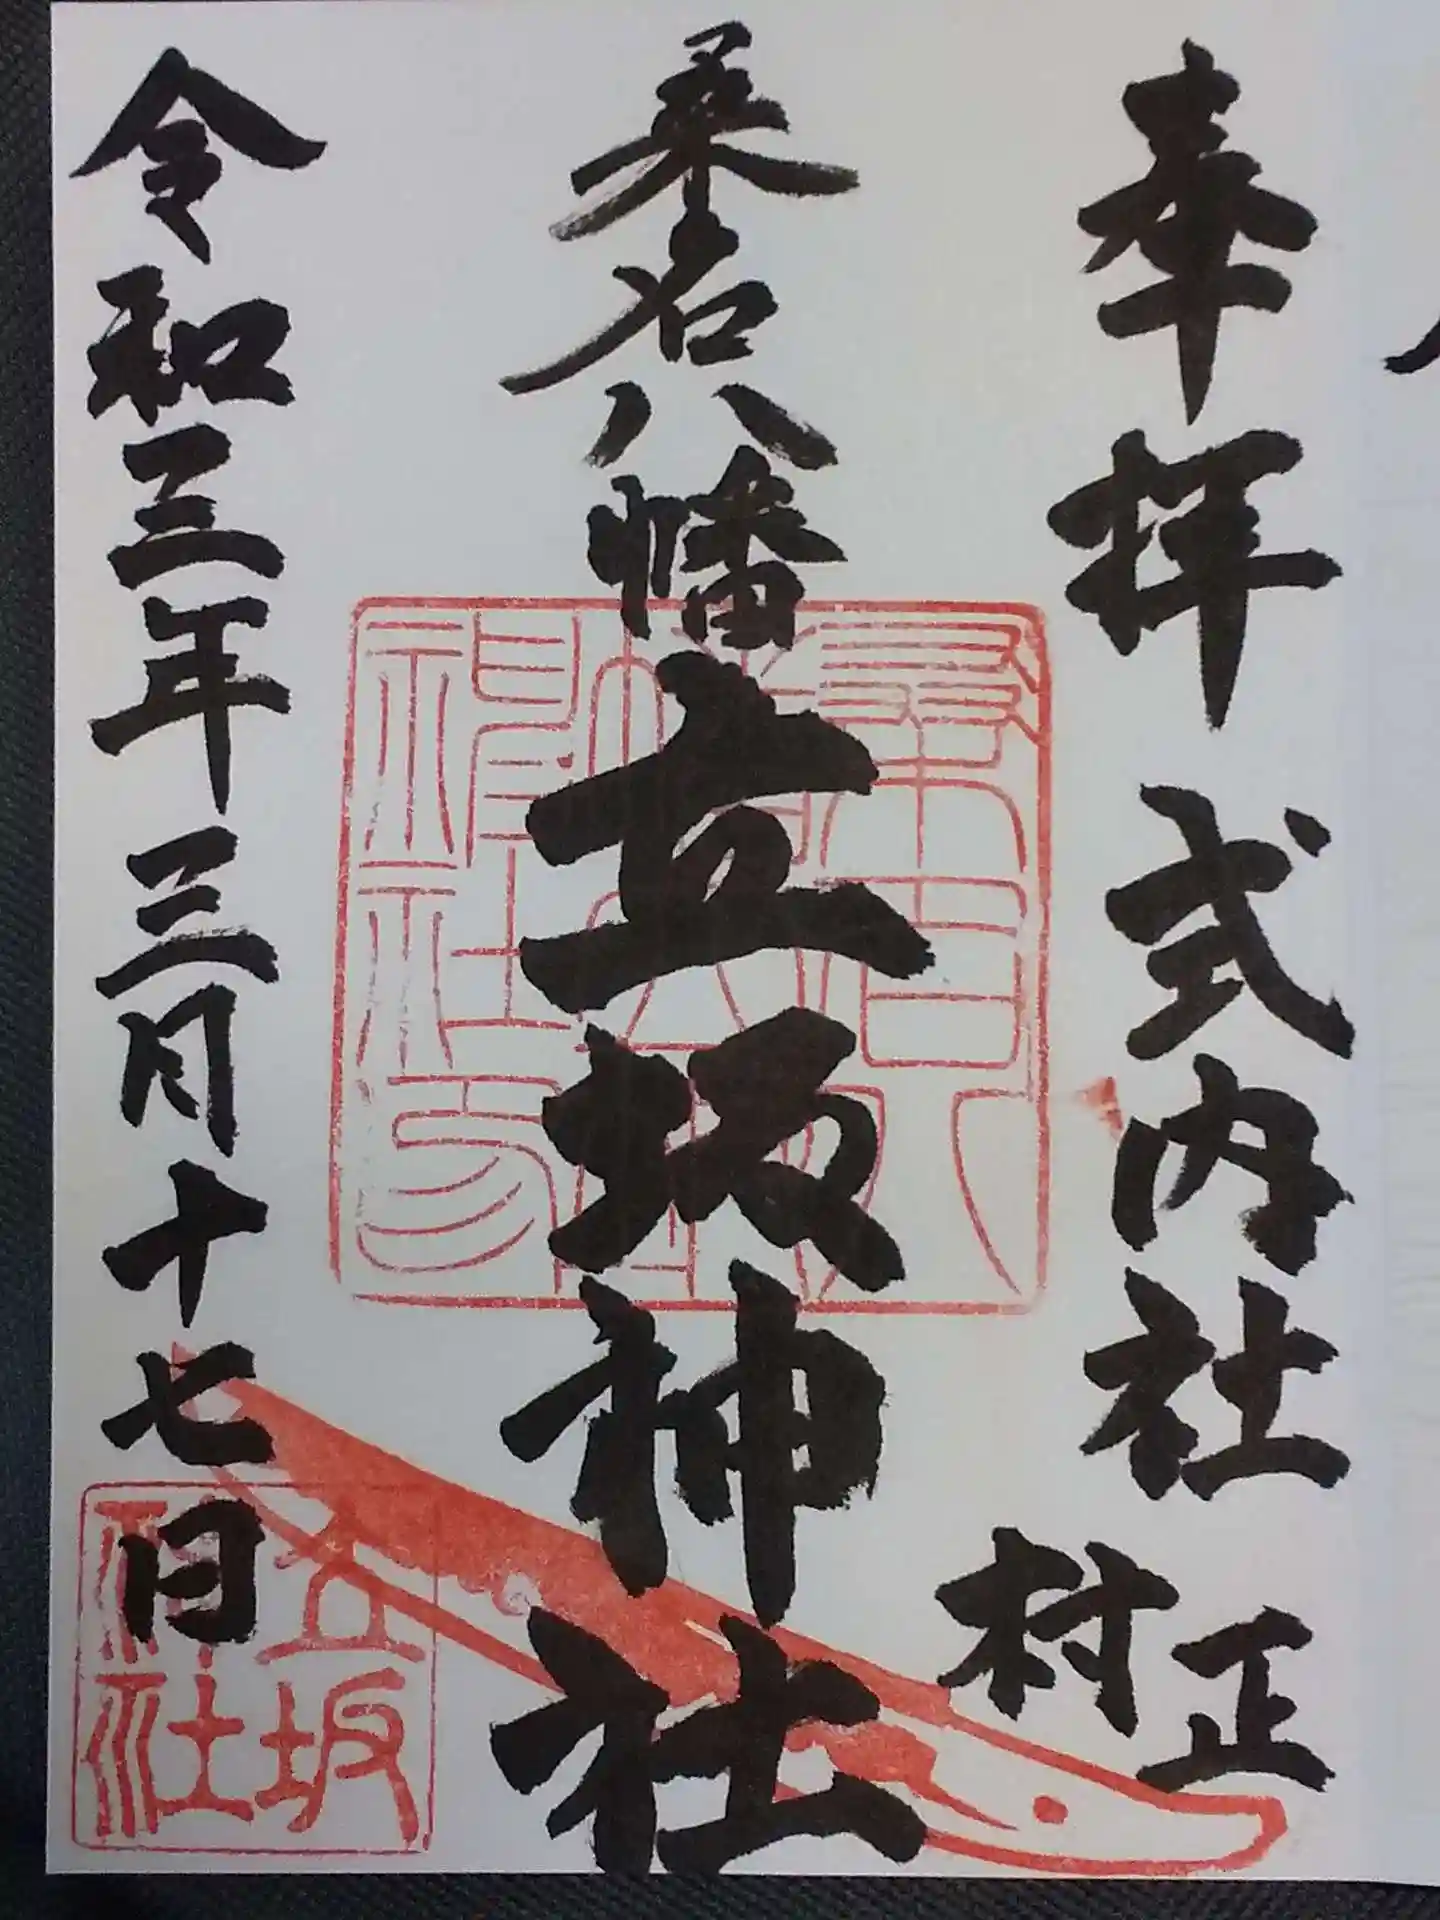 奉拝 式内社
正
村
桑名八幡
立坂神社
令和三年三月十七日
立坂
神社